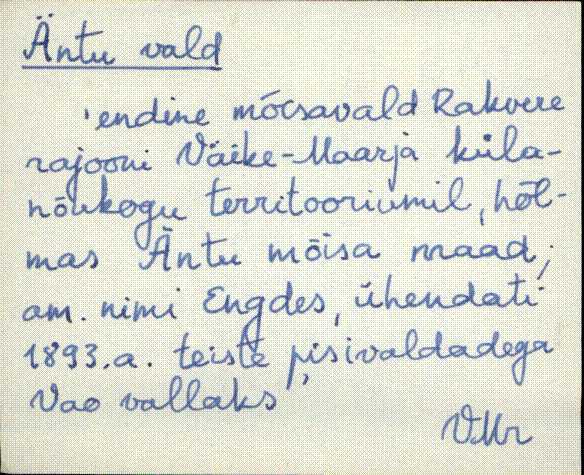 Äntu vald
endine mõisavald Rakvere
rajooni Väike-Maarja küla-
nõukogu territooriumil, hõl-
mas Äntu mõisa maad;
am. nimi Engdes, ühendati
1893.a. teiste pisivaldadega
Vao vallaks